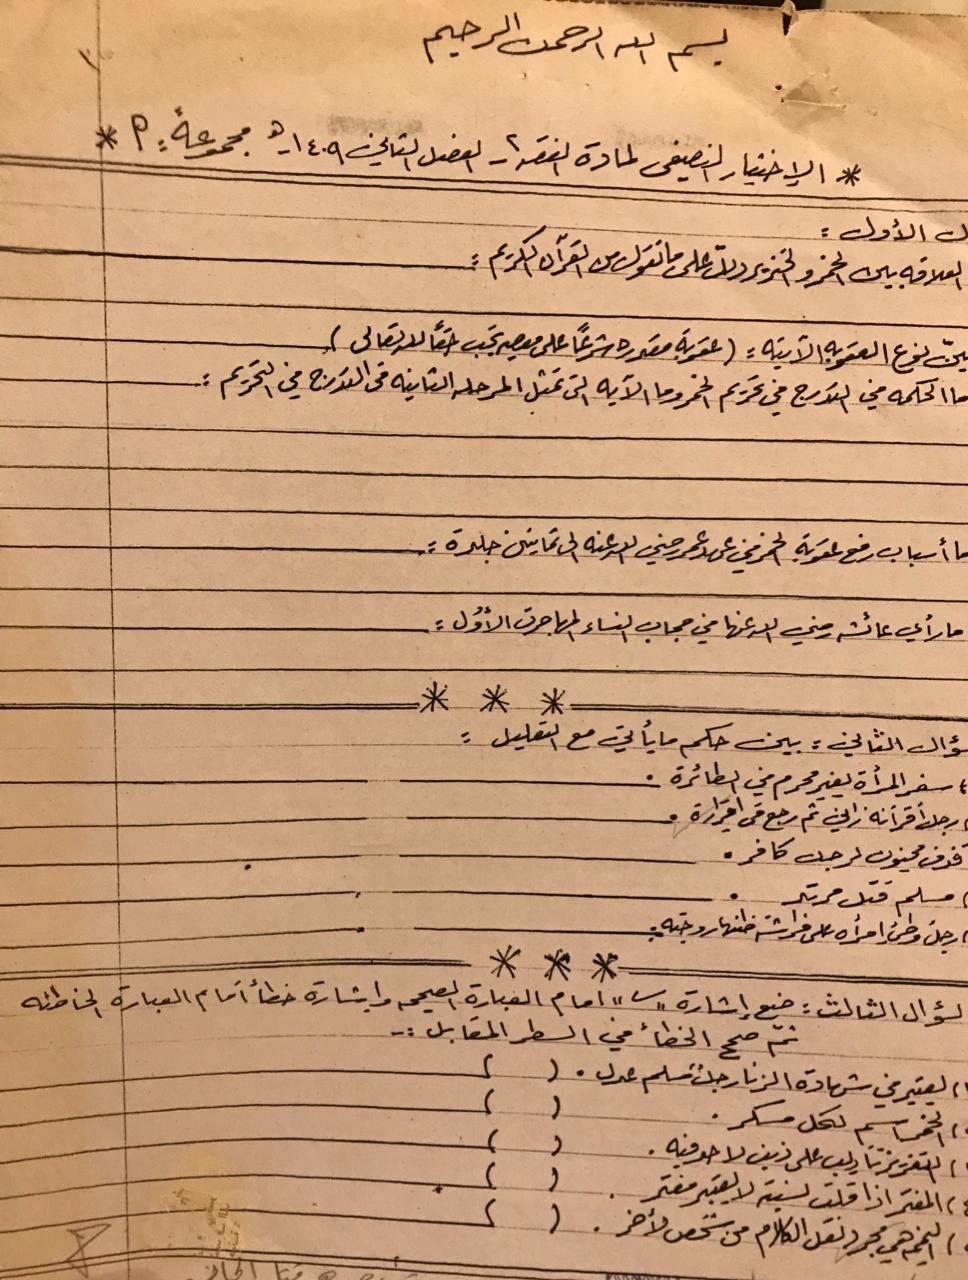 بسم الله الرحمن الرحيم
* الإختبار النصفي لمادة الفقه ٢ـ الفصل الثاني ١٤٠٩ـ هـ مجموعة: م *
ال الأول :
العلاقه بين الخمر و الخنزير دلل على ما تقول من القرآن الكريم :
بين نوع العقوبه الآتيه : ( عقوبة مقدره شرعاً على معصيه تجب حقاً لله تعالى )
ما الحكمه في التدرج في تحريم الخمر وما الآيه التي تمثل المرحله الثانيه في التدرج في التحريم :
ما أسباب رفع عقوبة الخمر في عهد عمر رضي الله عنه الى ثمانين جلدة :
ما رأي عائشه رضي الله عنها في حجاب النساء المهاجرات الأُوَل :
* * *
ؤال الثاني : بين حكم ما يأتي مع التعليل :
سفر المرأة بغير محرم في الطائرة .
رجل أقر أنه زاني ثم رجع في إقراره .
قذف مجنون لرجل كافر .
مسلم قتل مرتد .
رجل وطئ امرأه على فراشه ظنها زوجته .
* * *
لسؤال الثالث : ضع إشارة " س " امام العبارة الصحيحه وإشارة خطأ أمام العبارة الخاطئه
ثم صحح الخطأ في السطر المقابل :-
) يعتبر في شهادة الزنا رجل مسلم عدل . ( )
) الخمر اسم لكل مسكر . ( )
) التعزير تأديب على ذنب لا حد فيه . ( )
) المفتر اذا قلت نسبته لا يعتبر مفتر . ( )
) النميمه هي مجرد نقل الكلام من شخص لآخر . ( )